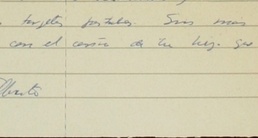 tarjetas postales. Sin mas
con el cariño de tu hijo que
Alberto